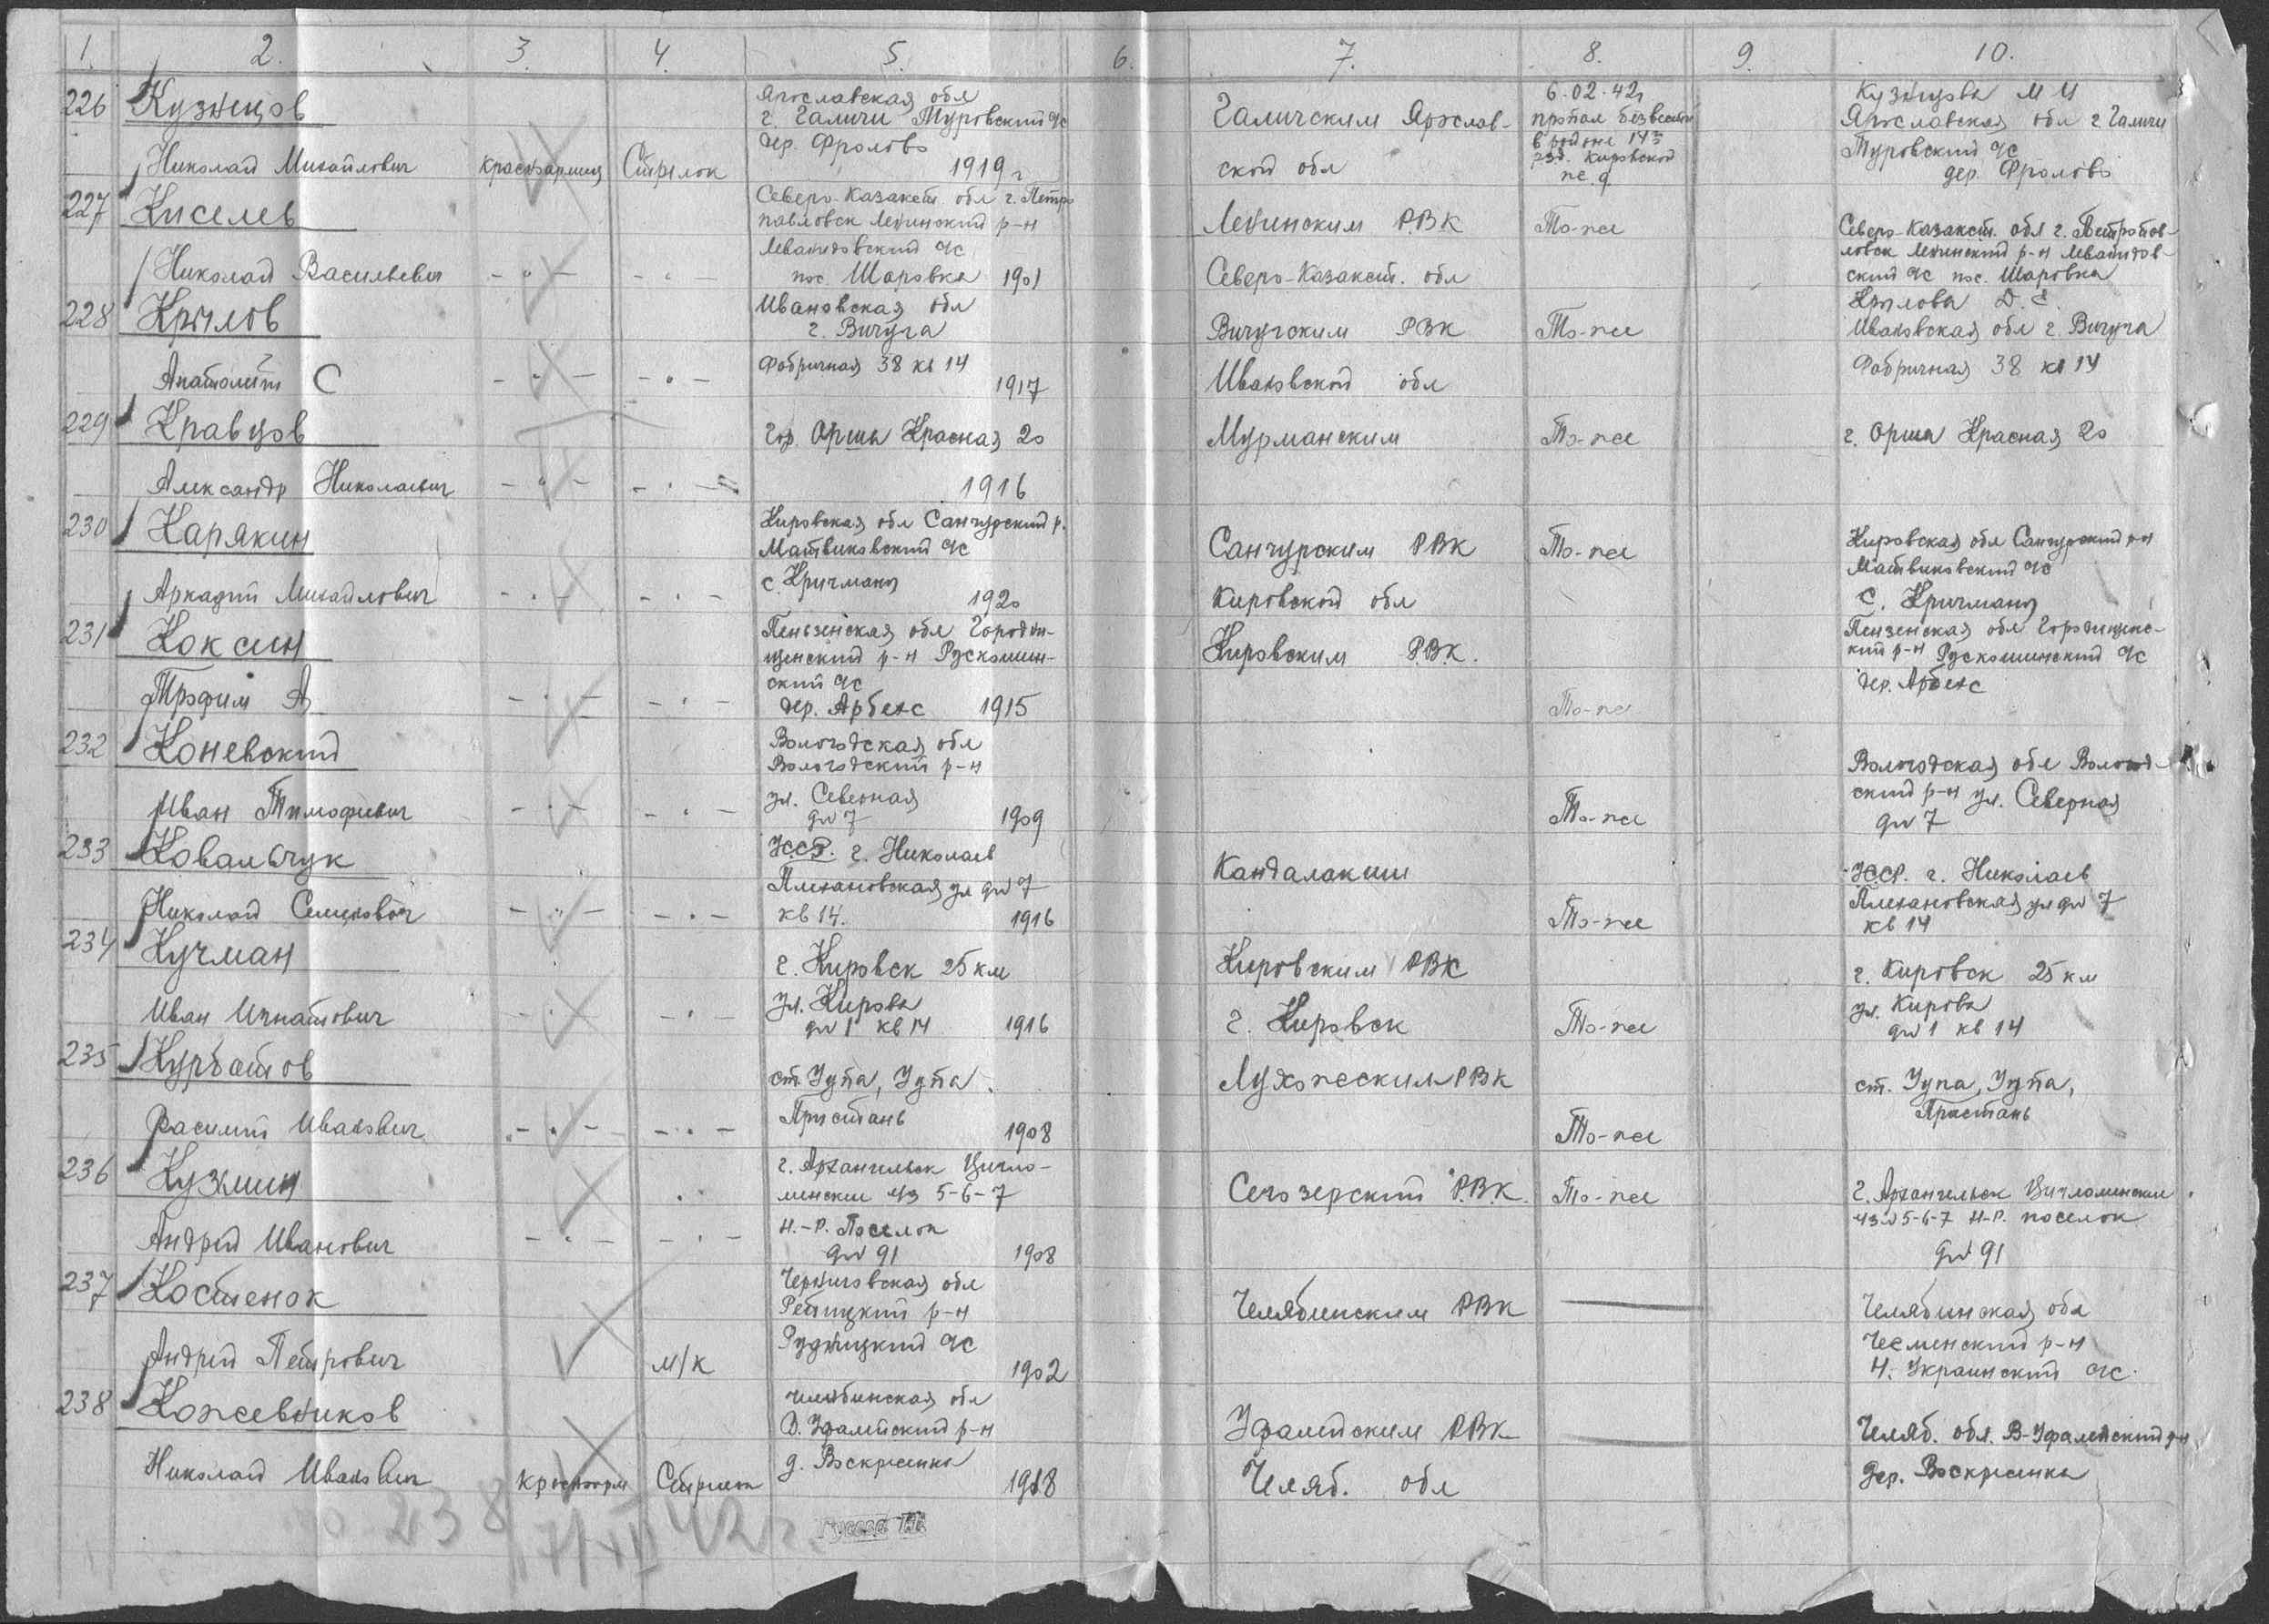 1. 2. 3. 4. 5. 6. 7. 8. 9. 10.
226 Кузнецов
Николай Михайлович
Красноармеец
Стрелок
Ярославская обл
г. Галичи Туровский с/с
дер. Фролово
1919 г
Галичским Ярослав-
ской обл
6.02.42г
пропал безвести
в районе 14го
раз. Кировской
же. д.
Кузнецова М И
Ярославская обл г Галичи
Туровский с/с
дер. Фролово
227 Киселев
Николай Васильевич
- " -
- " -
Северо-Казахст обл г. Петро
павловск Ленинский р-н
Левашовский с/с
пос. Шаровка 1901
Ленинским РВК
Северо-Казахст. обл
То-же
Северо-Казахст. обл г. Петропав-
ловск Ленинский р-н
ский с/с пос. Шаровка
228 Крылов
Анатолий С
- " -
- " -
Ивановская обл
г. Вичуга
Фабричная 38 кв 14
1917
Вичугским РВК
Ивановской обл
То-же
Крылова Д. Е.
Ивановская обл г. Вичуга
Фабричная 38 кв 14
229 Кравцов
Александр Николаевич
- " -
- " -
гор. Орша Красная 20
1916
Мурманским
То-же
г. Орша Красная 20
230 Карякин
Аркадий Михайлович
- " -
- " -
Кировская обл Санчурский р.
Матвиковский с/с
с. Кричману
1920
Санчурским РВК
Кировской обл
То-же
Кировская обл Санчурский р-н
Матвиковский с/с
с. Кричману
231 Коксин
Трофим А
- " -
- " -
Пеньзенская обл Городи-
щенский р-н Рускошин-
ский с/с
дер. Арбекс 1915
Кировским РВК.
То-же
Пензенская обл Городищенс-
кий р-н Рускошинский с/с
дер. Арбекс
232 Коневский
Иван Тимофиевич
- " -
- " -
Вологодская обл
Вологодский р-н
ул. Северная
дом 7 1909
То-же
Вологодская обл Вологод-
ский р-н ул. Северная
дом 7
233 Ковальчук
Николай Семенович
- " -
- " -
УССР. г. Николаев
Плехановская ул дом 7
кв 14. 1916
Кандалакши
То-же
УССР. г. Николаев
Плехановская ул дом 7
кв 14
234 Кучман
Иван Игнатович
- " -
- " -
г. Кировск 25 км
ул. Кирова
дом 1 кв 14 1916
Кировским РВК
г. Кировск
То-же
г. Кировск 25 км
ул. Кирова
дом 1 кв 14
235 Курбатов
Василий Иванович
- " -
- " -
ст. Чупа, Чупа
Пристань
1908
Лухожеским РВК
То-же
ст. Чупа, Чупа,
Пристань
236 Кузмин
Андрей Иванович
- " -
- " -
г. Архангельск Цигло-
минские л/з 5-6-7
Н.-Р. Поселок
дом 91 1908
Сегозерский РВК.
То-же
г. Архангельск Цигломинские
5-6-7 Н-Р. поселок
дом 91
237 Костенок
Андрей Петрович
м/к
Черниговская обл
Репицкий р-н
Рудницкий с/с
1902
Челябинским РВК
Челябинская обл
Чесменский р-н
Н. Украинский с/с
238 Кожевников
Николай Иванович
Красноарм
Стрелок
Челябинская обл
В. Уфалейский р-н
д. Воскресенка
1918
Уфалейским РВК
Челяб. обл
Челяб. обл. В-Уфалейский р-н
дер. Воскресенка
238
17/XII 42 г.